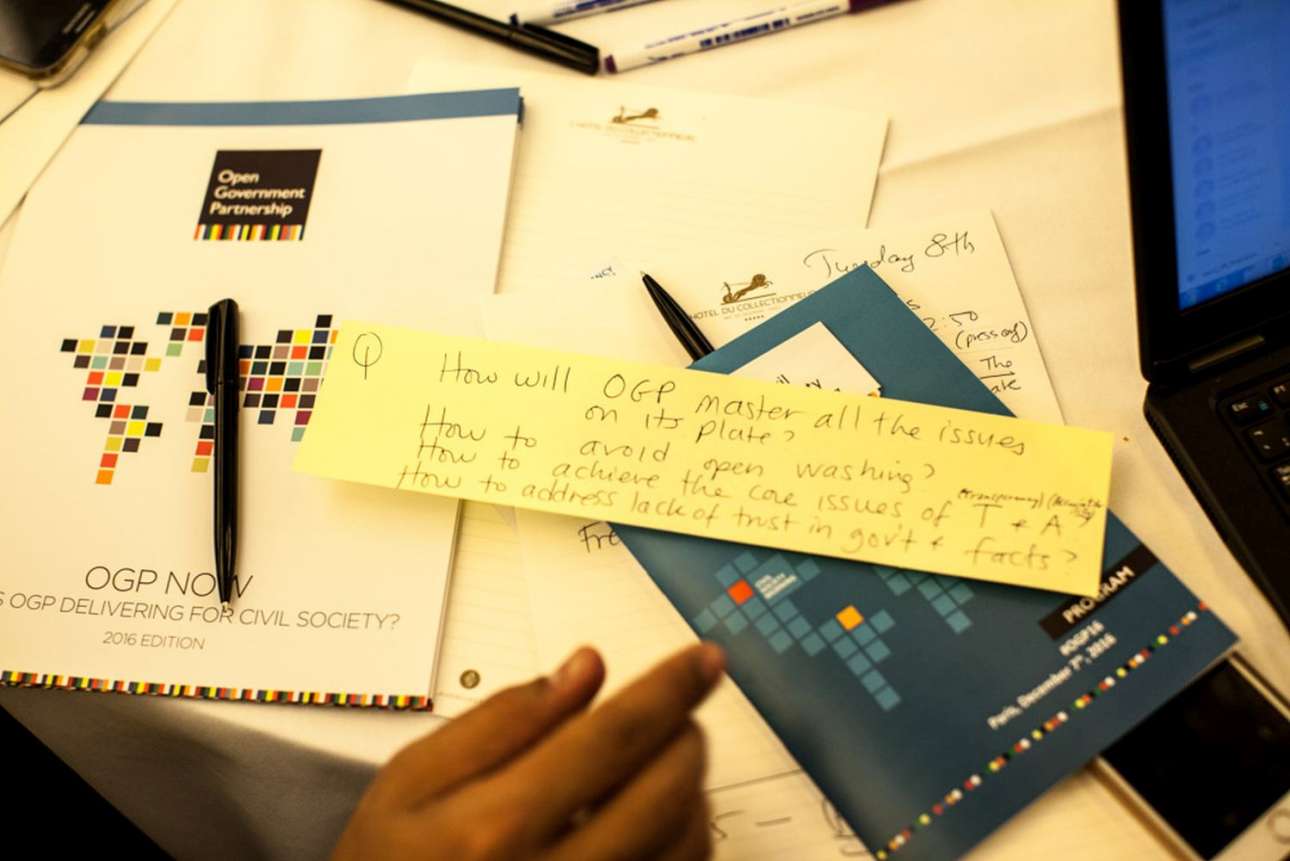 Open
Government
Partnership
OGP NOW
OGP DELIVERING FOR CIVIL SOCIETY?
2016 EDITION
HOTEL DU COLLECTIONNEUR
HOTEL DU COLLECTIONNEUR
Tuesday 8th
2:50
The
Q
How will OGP master all the issues
on its plate?
How to avoid open washing?
How to achieve the core issues of T & A?
(transparency)
How to address lack of trust in gov't & facts?
Fre
CIVIL
SOCIETY
MORNING
PROGRAM
#OGP16
Paris, December 7th, 2016
Esc